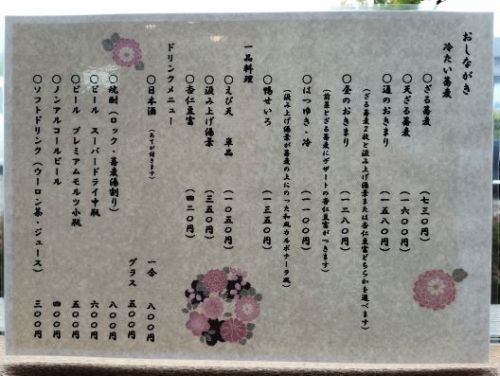 おしながき
冷たい蕎麦
〇ざる蕎麦 (七三〇円)
〇天ざる蕎麦 (一六〇〇円)
〇通のおきまり (一五八〇円)
(ざる蕎麦2枚と汲み上げ湯葉または杏仁豆富どちらかを選べます)
〇昼のおきまり (一二八〇円)
(前菜とざる蕎麦にデザートの杏仁豆富がつきます)
〇はつゆき・冷 (一一〇〇円)
(汲み上げ湯葉が蕎麦の上にのった和風カルボナーラ風)
〇鴨せいろ (一三五〇円)
一品料理
〇えび天 単品 (一〇五〇円)
〇汲み上げ湯葉 (三五〇円)
〇杏仁豆富 (四二〇円)
ドリンクメニュー
〇日本酒 (あてが付きます) 一合 八〇〇円
グラス 五〇〇円
〇焼酎(ロック・蕎麦湯割り) 八〇〇円
〇ビール スーパードライ中瓶 六〇〇円
〇ビール プレミアムモルツ小瓶 五〇〇円
〇ノンアルコールビール 四〇〇円
〇ソフトドリンク(ウーロン茶・ジュース) 三〇〇円